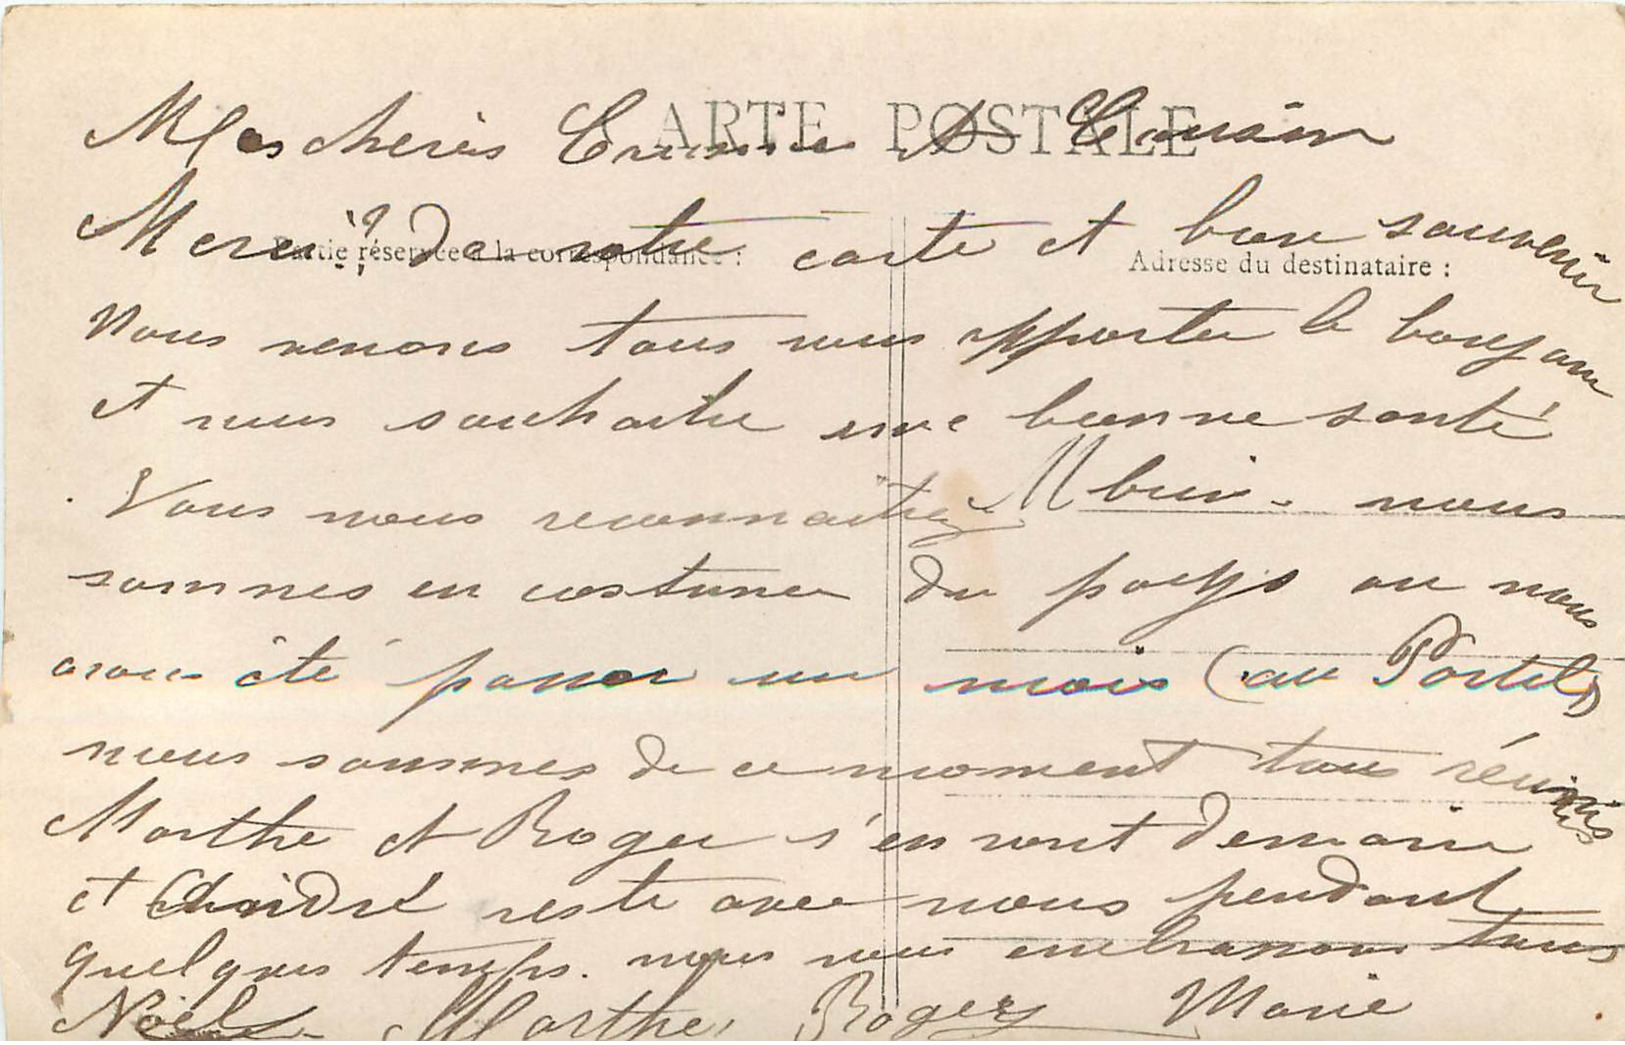 CARTE POSTALE
Mes cheries Cousine et Cousin
Partie réservée à la correspondance :
Adresse du destinataire :
Merci de votre carte et bon souvenir
Nous venons tous vous apporter le bonjour
et vous souhaiter une bonne santé
Vous nous reconnaitrez bien. nous
sommes en costume du pays ou nous
avons été passer un mois (au Portel)
nous sommes de ce moment tous réunis
Marthe et Roger s'en vont demain
et André reste avec nous pendant
quelques temps. nous vous embrassons tous
Noël Marthe, Roger Marie